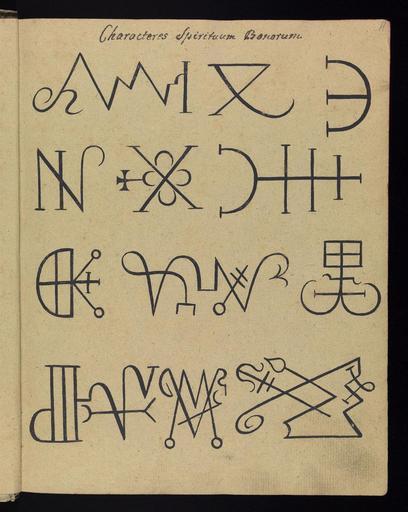 Characteres Spirituum Bonorum.